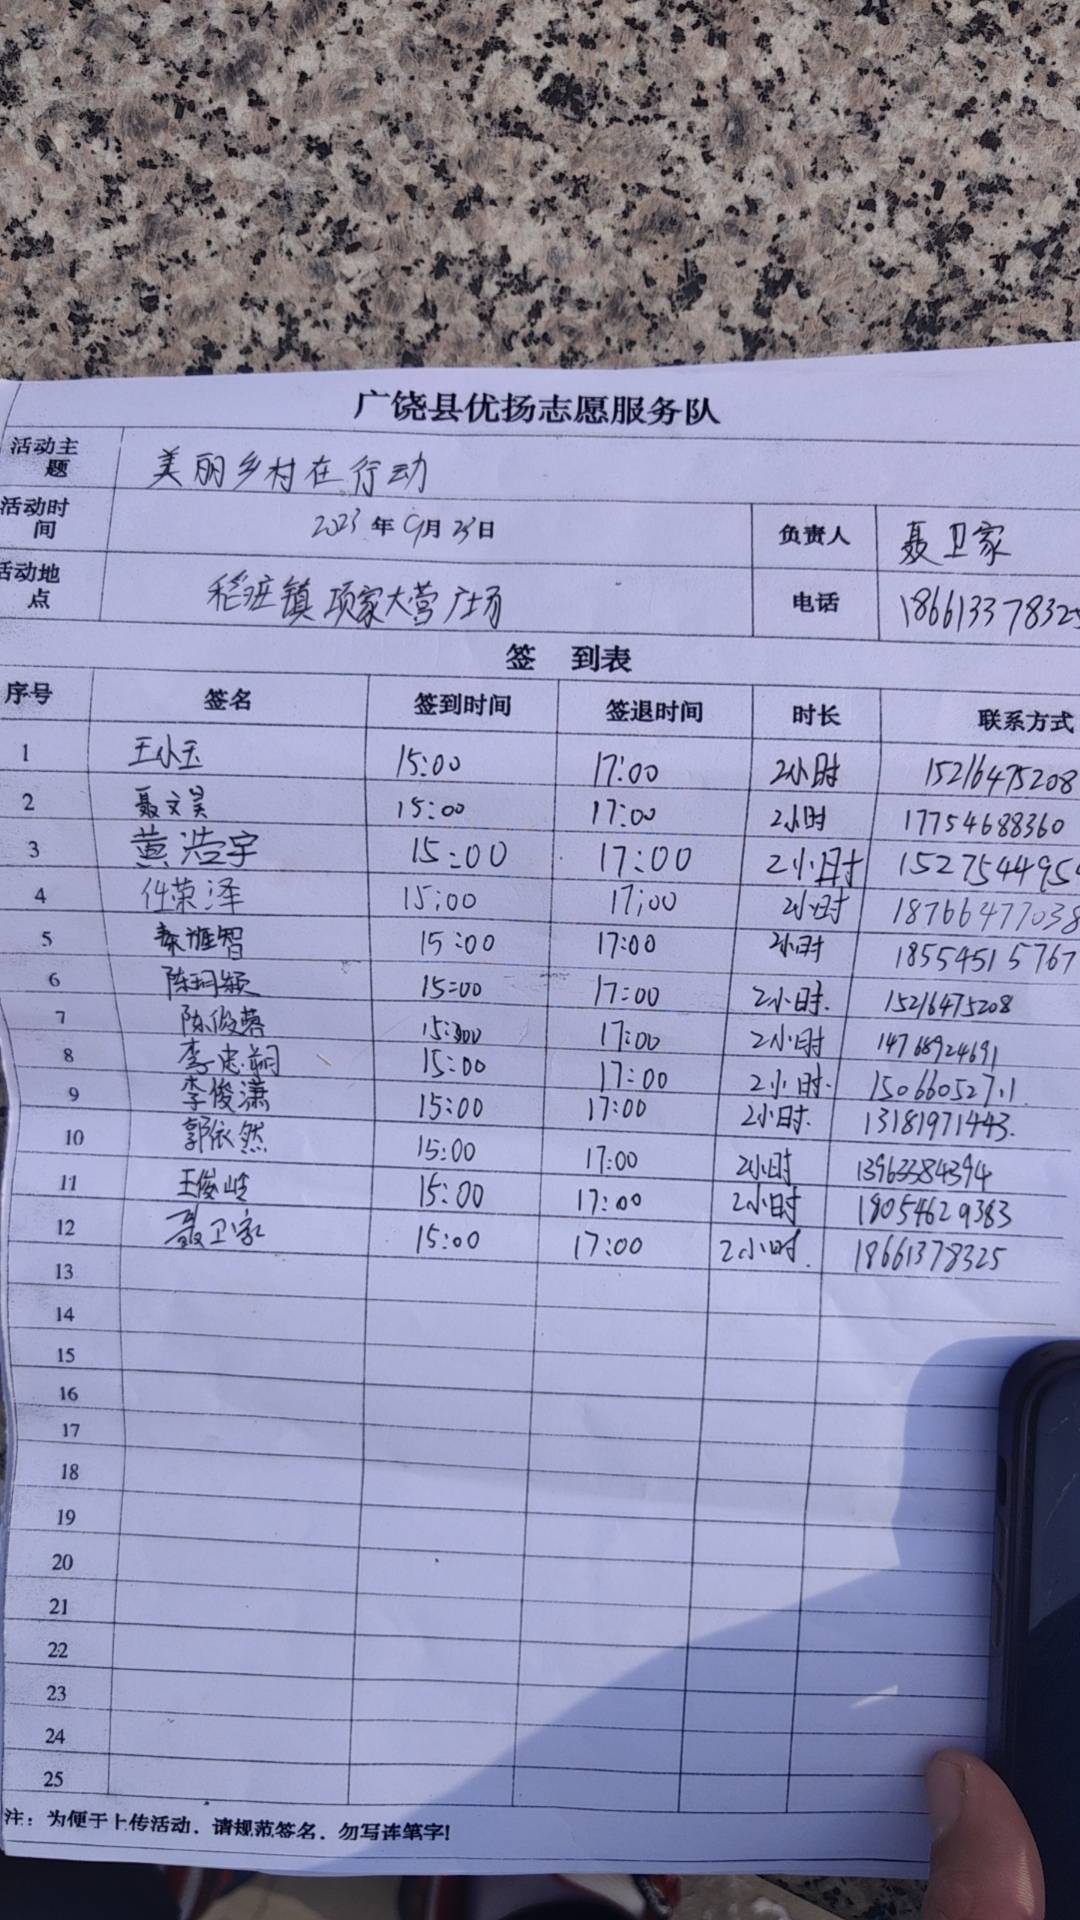 广饶县优扬志愿服务队
活动主题 美丽乡村在行动
活动时间 2023年9月23日 负责人 聂卫家
活动地点 稻庄镇项家大营广场 电话 186613378325
签 到表
序号 签名 签到时间 签退时间 时长 联系方式
1 王小玉 15:00 17:00 2小时 15216475208
2 聂文昊 15:00 17:00 2小时 17754688360
3 黄浩宇 15:00 17:00 2小时 1527544954
4 任荣泽 15:00 17:00 2小时 18766477038
5 15:00 17:00 2小时 18554515767
6 陈玥颖 15:00 17:00 2小时. 15216475208
7 陈俊蓉 15:00 17:00 2小时 14768924691
8 15:00 17:00 2小时.
9 李俊潇 15:00 17:00 2小时. 13181971443.
10 郭依然 15:00 17:00 2小时 13963384394
11 王俊岭 15:00 17:00 2小时 18054629383
12 聂卫家 15:00 17:00 2小时. 18661378325
13
14
15
16
17
18
19
20
21
22
23
24
25
注：为便于上传活动，请规范签名，勿写连笔字!